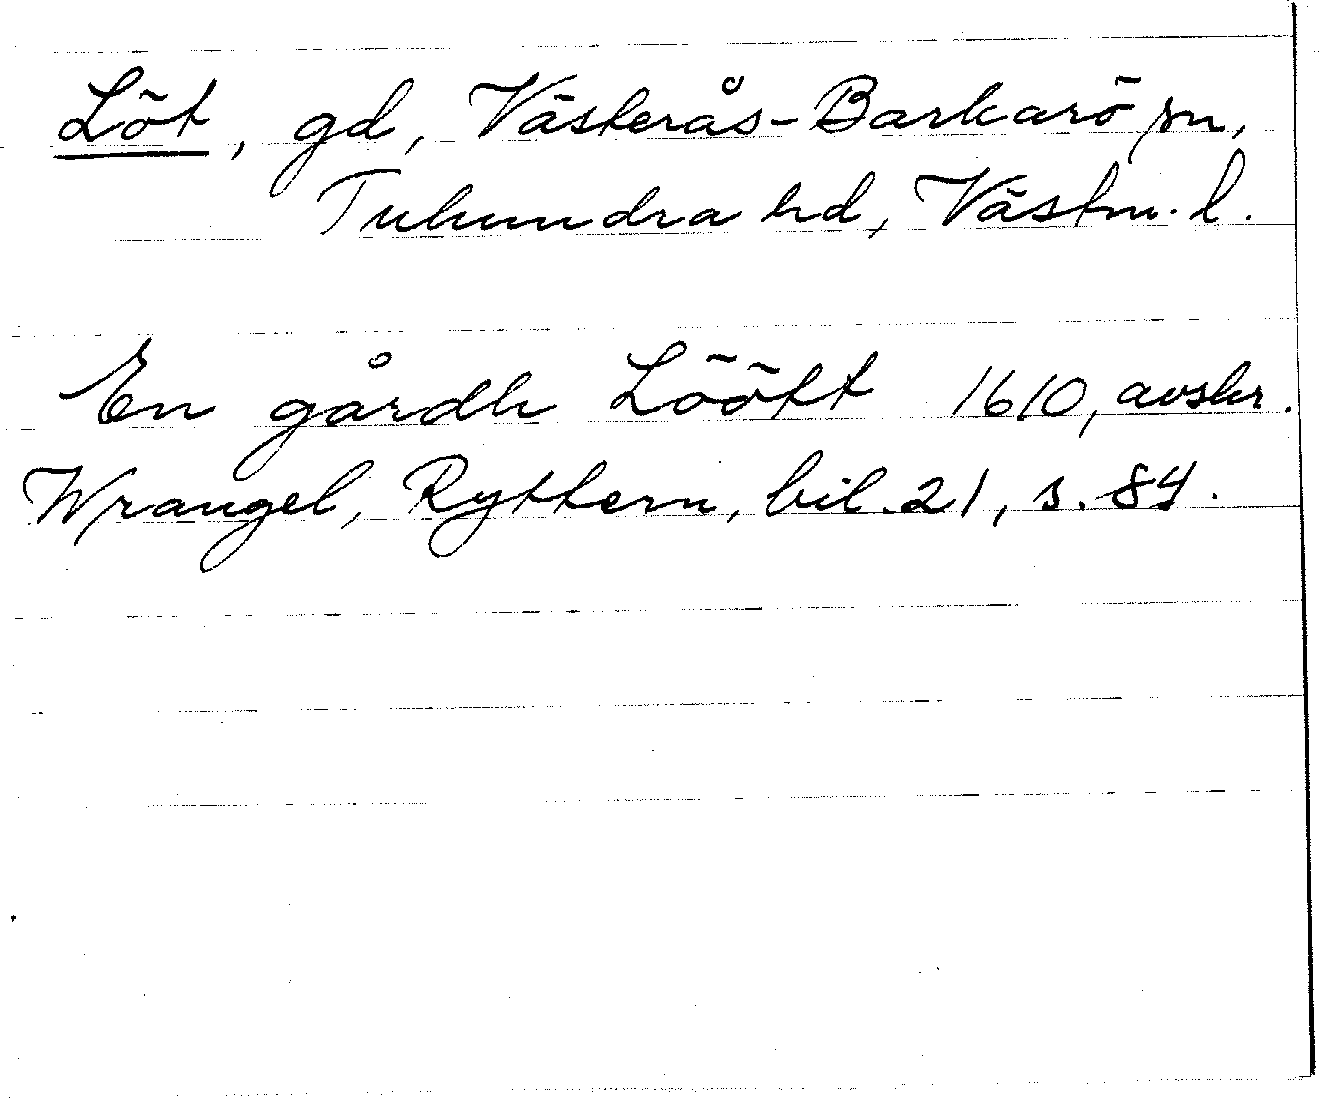 Löt, gd, Västerås-Barkarö sn,
Tuhundra hd, Västm. l.
En gårdh Löött 1610, avskr.
Wrangel, Ryttern, bil. 21, s. 84.